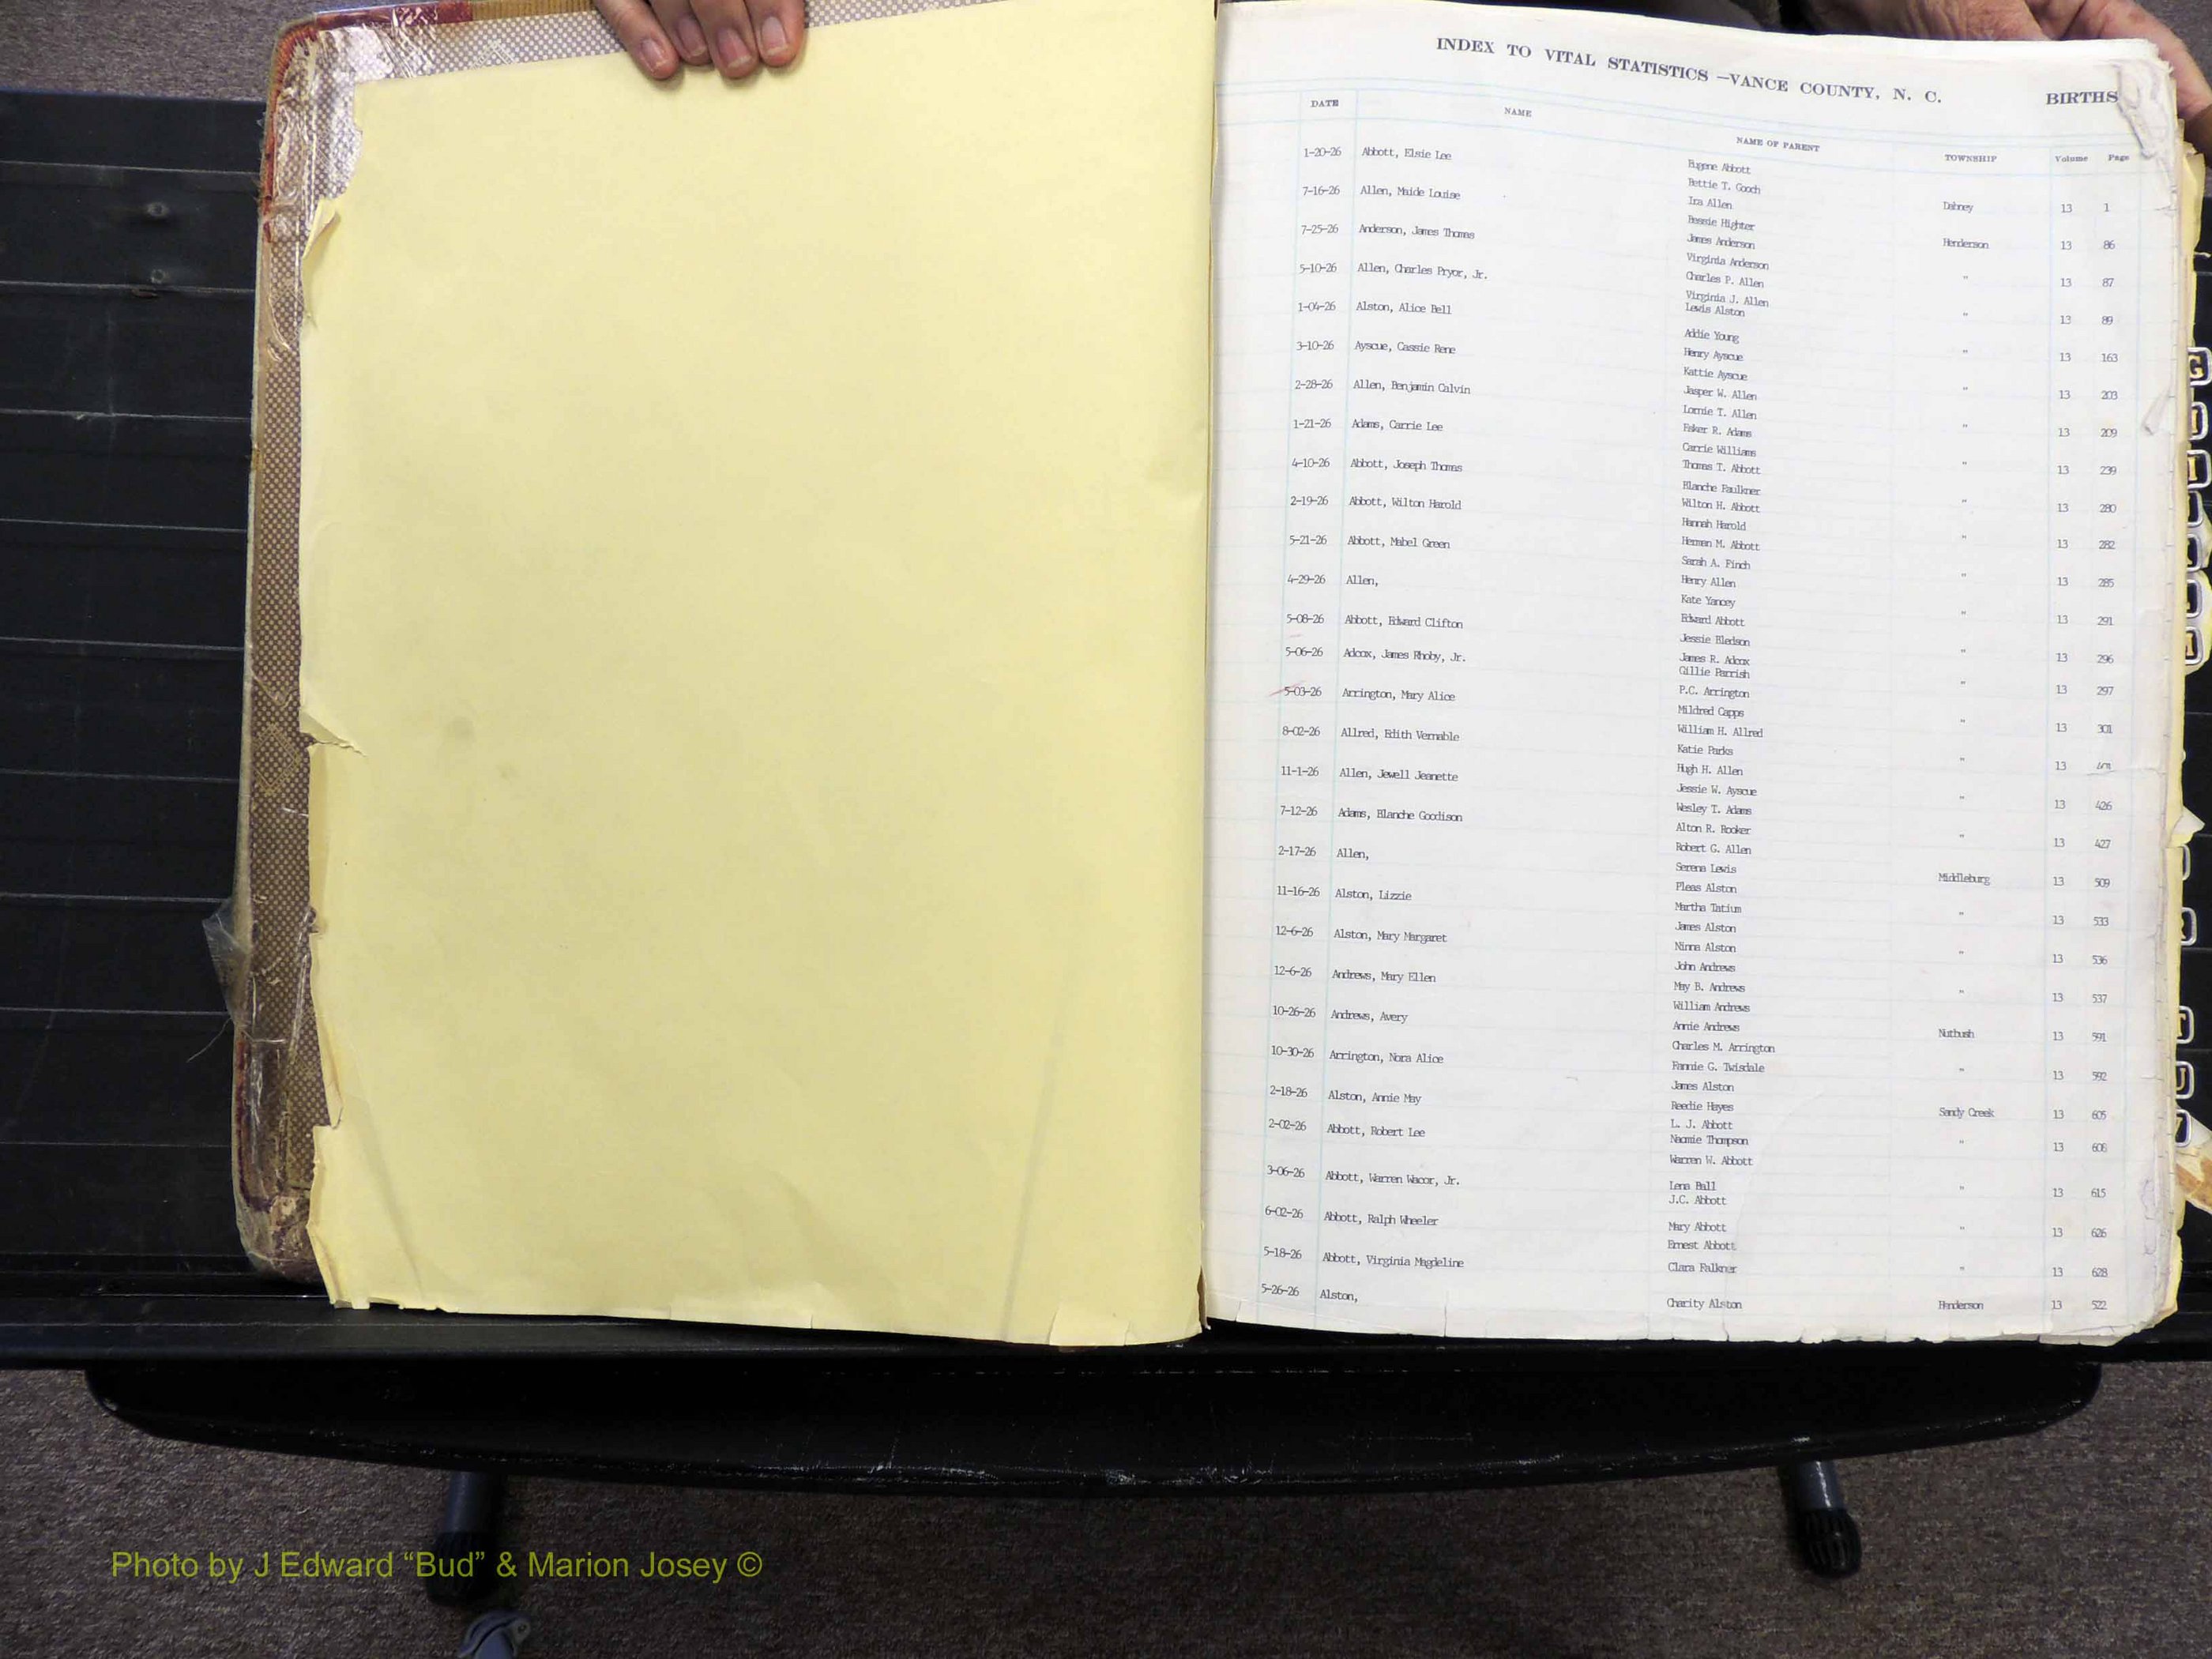 INDEX TO VITAL STATISTICS —VANCE COUNTY, N. C. BIRTHS
DATE NAME NAME OF PARENT TOWNSHIP Volume Page
1-20-26 Abbott, Elsie Lee Eugene Abbott
Bettie T. Gooch Dabney 13 1
7-16-26 Allen, Maide Louise Ira Allen
Bessie Highter Henderson 13 86
7-25-26 Anderson, James Thomas James Anderson
Virginia Anderson " 13 87
5-10-26 Allen, Charles Pryor, Jr. Charles P. Allen
Virginia J. Allen " 13 89
1-04-26 Alston, Alice Bell Lewis Alston
Addie Young " 13 163
3-10-26 Ayscue, Cassie Rene Henry Ayscue
Kattie Ayscue " 13 203
2-28-26 Allen, Benjamin Calvin Jasper W. Allen
Lornie T. Allen " 13 209
1-21-26 Adams, Carrie Lee Baker R. Adams
Carrie Williams " 13 239
4-10-26 Abbott, Joseph Thomas Thomas T. Abbott
Blanche Faulkner " 13 280
2-19-26 Abbott, Wilton Harold Wilton H. Abbott
Hannah Harold " 13 282
5-21-26 Abbott, Mabel Green Herman M. Abbott
Sarah A. Finch " 13 285
4-29-26 Allen, Henry Allen
Kate Yancey " 13 291
5-08-26 Abbott, Edward Clifton Edward Abbott
Jessie Bledson " 13 296
5-06-26 Adcox, James Rhoby, Jr. James R. Adcox
Gillie Parrish " 13 297
5-03-26 Arrington, Mary Alice P.C. Arrington
Mildred Capps " 13 301
8-02-26 Allred, Edith Vernable William H. Allred
Katie Parks " 13
11-1-26 Allen, Jewell Jeanette Hugh H. Allen
Jessie W. Ayscue " 13 426
7-12-26 Adams, Blanche Goodison Wesley T. Adams
Alton R. Rooker " 13 427
2-17-26 Allen, Robert G. Allen
Serena Lewis Middleburg 13 509
11-16-26 Alston, Lizzie Pleas Alston
Martha Tatium " 13 533
12-6-26 Alston, Mary Margaret James Alston
Ninna Alston " 13 536
12-6-26 Andrews, Mary Ellen John Andrews
May B. Andrews " 13 537
10-26-26 Andrews, Avery William Andrews
Annie Andrews Nutbush 13 591
10-30-26 Arrington, Nora Alice Charles M. Arrington
Fannie G. Twisdale " 13 592
2-18-26 Alston, Annie May James Alston
Reedie Hayes Sandy Creek 13 605
2-02-26 Abbott, Robert Lee L. J. Abbott
Naomie Thompson " 13 608
3-06-26 Abbott, Warren Wacor, Jr. Warren W. Abbott
Lena Ball " 13 615
6-02-26 Abbott, Ralph Wheeler J.C. Abbott
Mary Abbott " 13 626
5-18-26 Abbott, Virginia Magdeline Ernest Abbott
Clara Falkner " 13 628
5-26-26 Alston, Charity Alston Henderson 13 522
Photo by J Edward “Bud” & Marion Josey ©